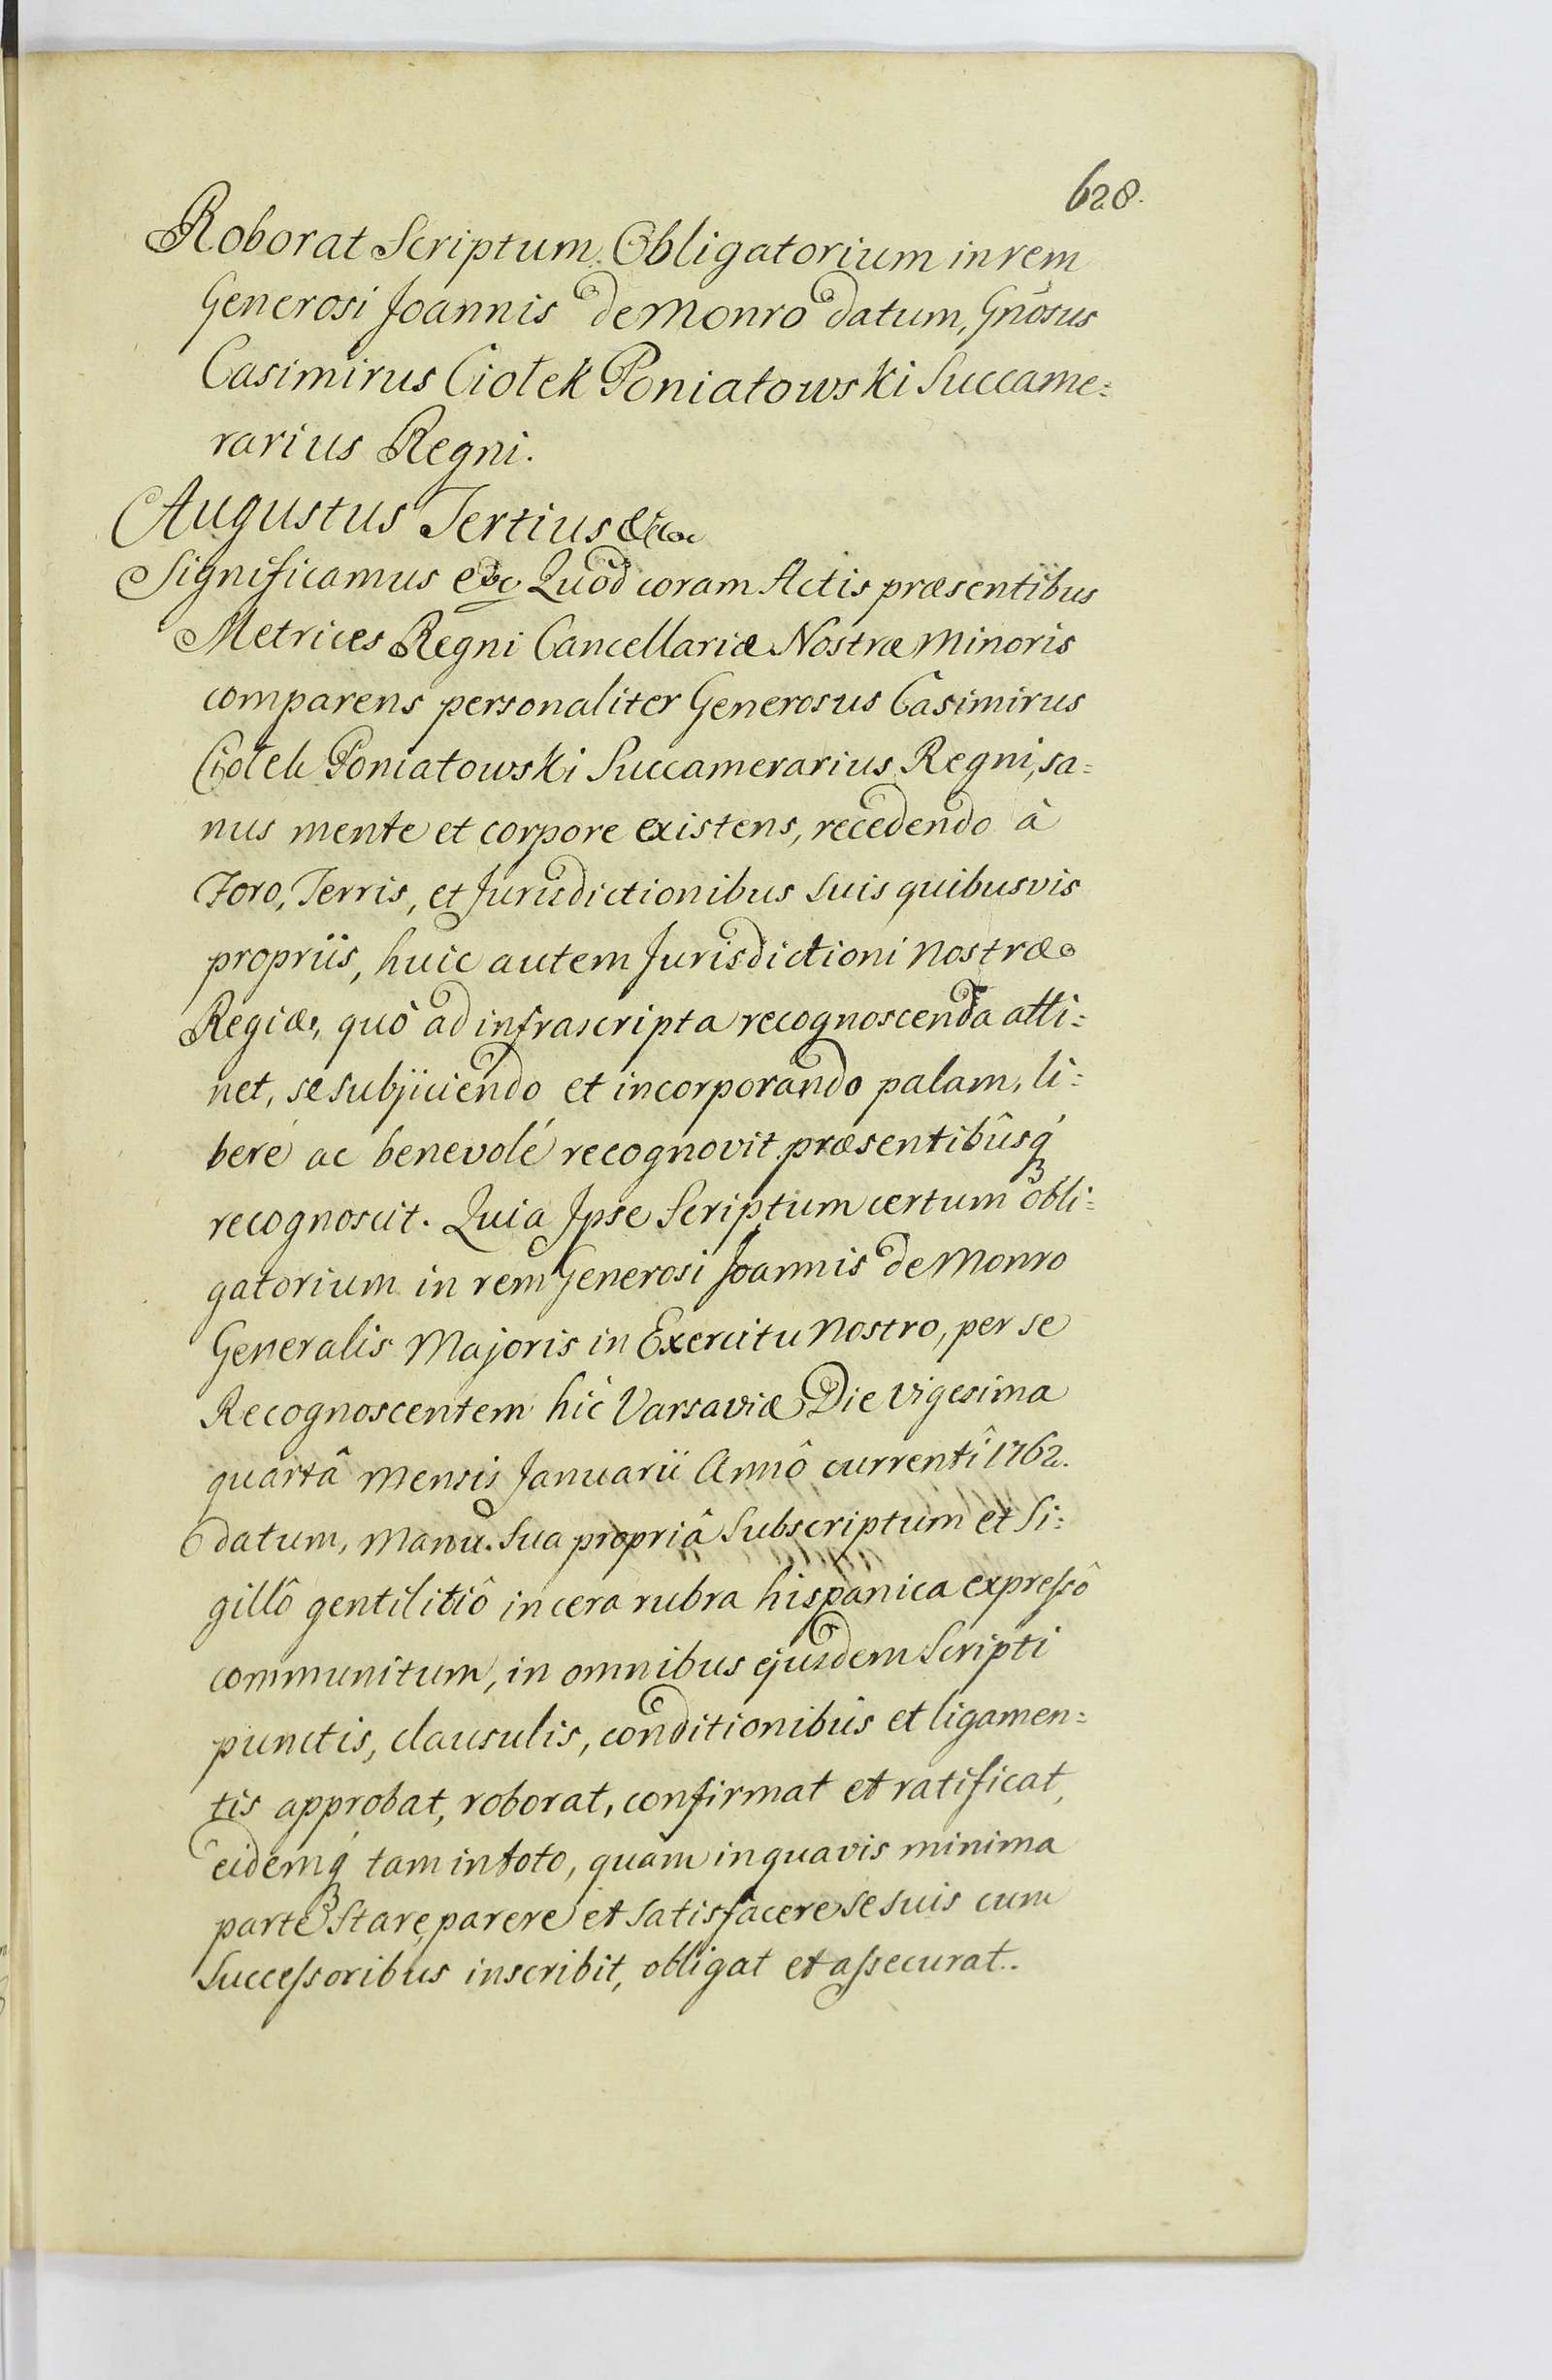 628.
Roborat Scriptum Obligatorium in rem
Generosi Joannis de Monro datum, Gnõsus
Casimirus Ciołek Poniatowski Succame:
rarius Regni.
Augustus Tertius &c
Significamus &c Quod coram Actis præsentibus
Metrices Regni Cancellariæ Nostræ Minoris
comparens personaliter Generosus Casimirus
Ciołek Poniatowski Succamerarius Regni, sa:
nus mente et corpore existens, recedendo à
Foro, Terris, et Jurisdictionibus suis quibusvis
propriis, huic autem Jurisdictioni Nostræ
Regiæ, quò ad infrascripta recognoscenda atti:
net, se subjiciendo et incorporando palam, li:
beré ac benevolé recognovit præsentibûsq́
recognoscit. Quia Ipse Scriptum certum obli:
gatorium in rem Generosi Joannis de Monro
Generalis Majoris in Exercitu Nostro, per se
Recognoscentem hic Varsaviæ Die vigesima
quartâ Mensis Januarii Annô currentî 1762.
datum, Manu Sua propriâ Subscriptum et Si:
gillô gentilitiô in cera rubra hispanica expressô
communitum, in omnibus ejusdem Scripti
punctis, clausulis, conditionibus et ligamen:
tis approbat, roborat, confirmat et ratificat,
eidemq́ tam in toto, quàm in quavis minima
parte Stare, parere et Satisfacere se suis cum
Successoribus inscribit, obligat et assecurat..